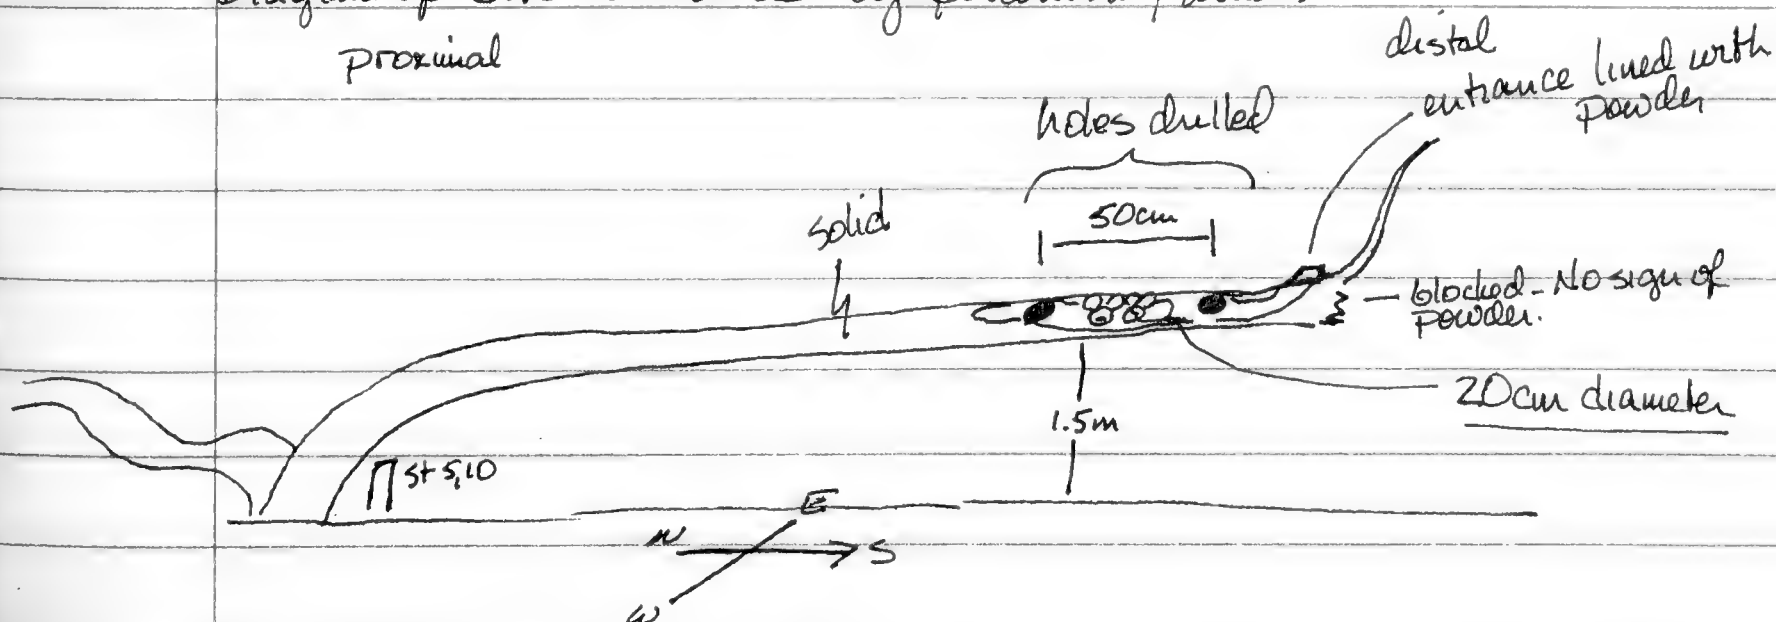 Diagram of
proximal
distal
entrance lined with
powder
holes drilled
50cm
solid
blocked - No sign of
powder.
20cm diameter
1.5m
St 5,10
E
N
S
W